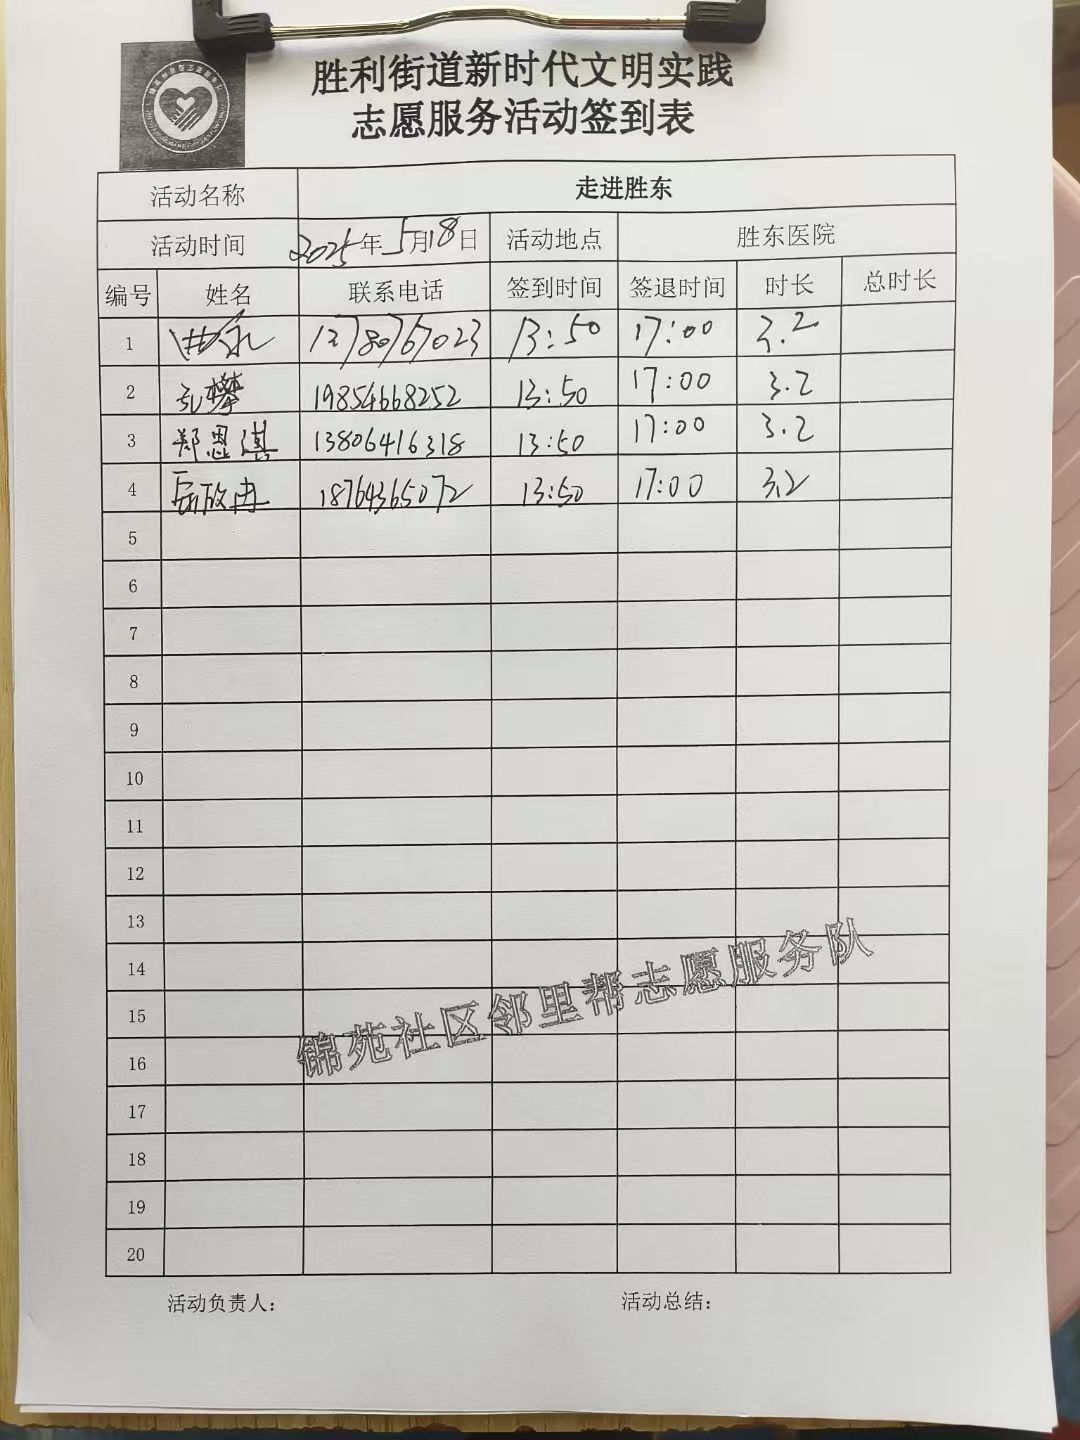 胜利街道新时代文明实践
志愿服务活动签到表
活动名称 走进胜东
活动时间 2025年5月18日 活动地点 胜东医院
编号 姓名 联系电话 签到时间 签退时间 时长 总时长
1 13:50 17:00 3.2
2 孔攀 19854668252 13:50 17:00 3.2
3 郑恩淇 13806416318 13:50 17:00 3.2
4 18764365072 13:50 17:00 3.2
5
6
7
8
9
10
11
12
13
14
15
16
17
18
19
20
锦苑社区邻里帮志愿服务队
活动负责人： 活动总结：